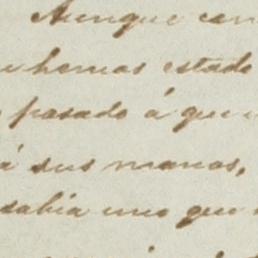 Aunque
hemos estado
pasado á que
á sus manos,
sabia uno que